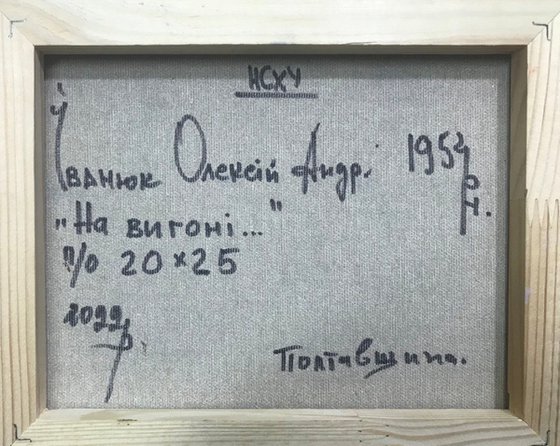 НСХУ
Іванюк Олексій Андр. 1954 р.н.
„На вигоні..."
п/о 20×25
2022 р.
Полтавщина.